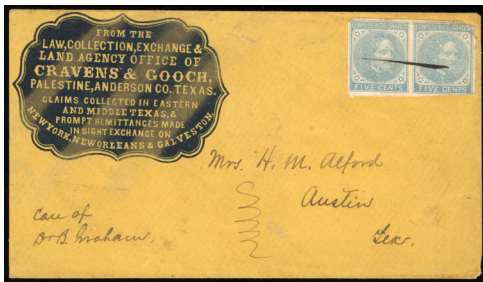 FROM THE
LAW, COLLECTION, EXCHANGE &
LAND AGENCY OFFICE OF
CRAVENS & GOOCH,
PALESTINE, ANDERSON CO. TEXAS.
CLAIMS COLLECTED IN EASTERN
AND MIDDLE TEXAS, &
PROMPT REMITTANCES MADE
IN SIGHT EXCHANGE ON
NEW YORK, NEW ORLEANS & GALVESTON.
FIVE CENTS
FIVE CENTS
Mrs. H. M. Alford
Austin
Tex.
Care of
Dr B. Graham,